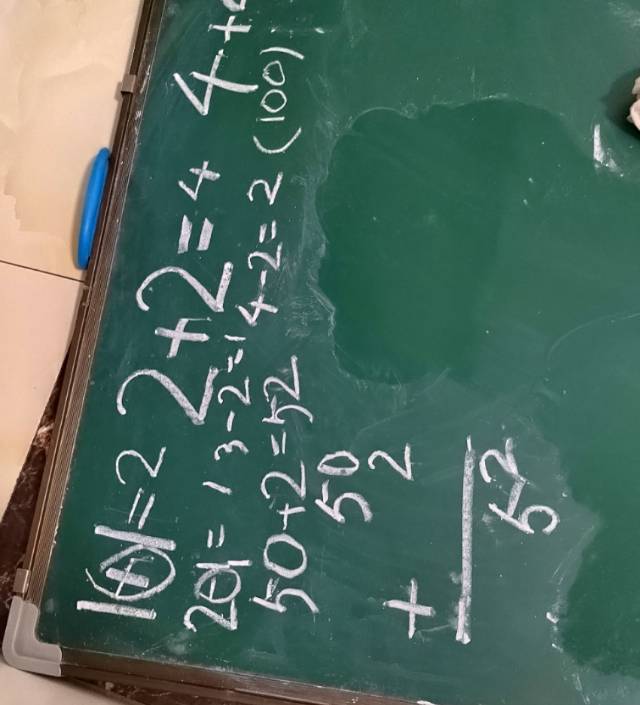 1+1=2 2+2=4 4+
2-1=1 3-2=1 4-2=2 (100)
50+2=52
50
+ 2
52